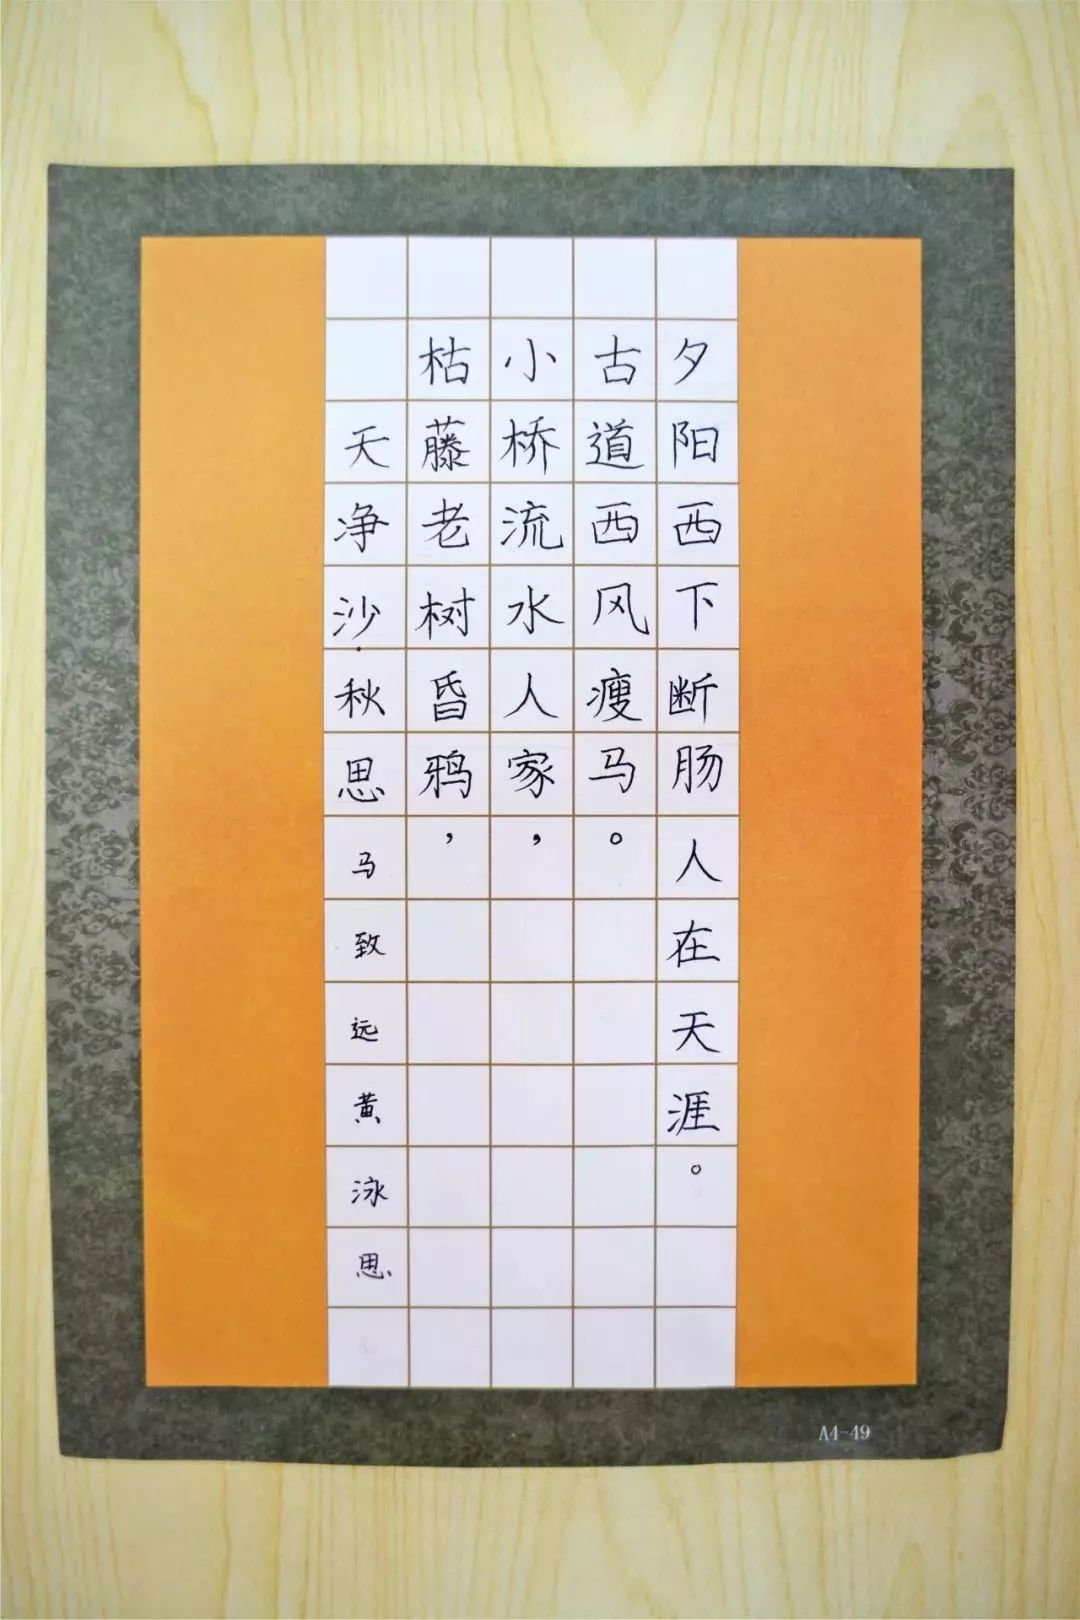 天净沙·秋思 马致远 黄泳思
枯藤老树昏鸦，
小桥流水人家，
古道西风瘦马。
夕阳西下断肠人在天涯。
A4-49